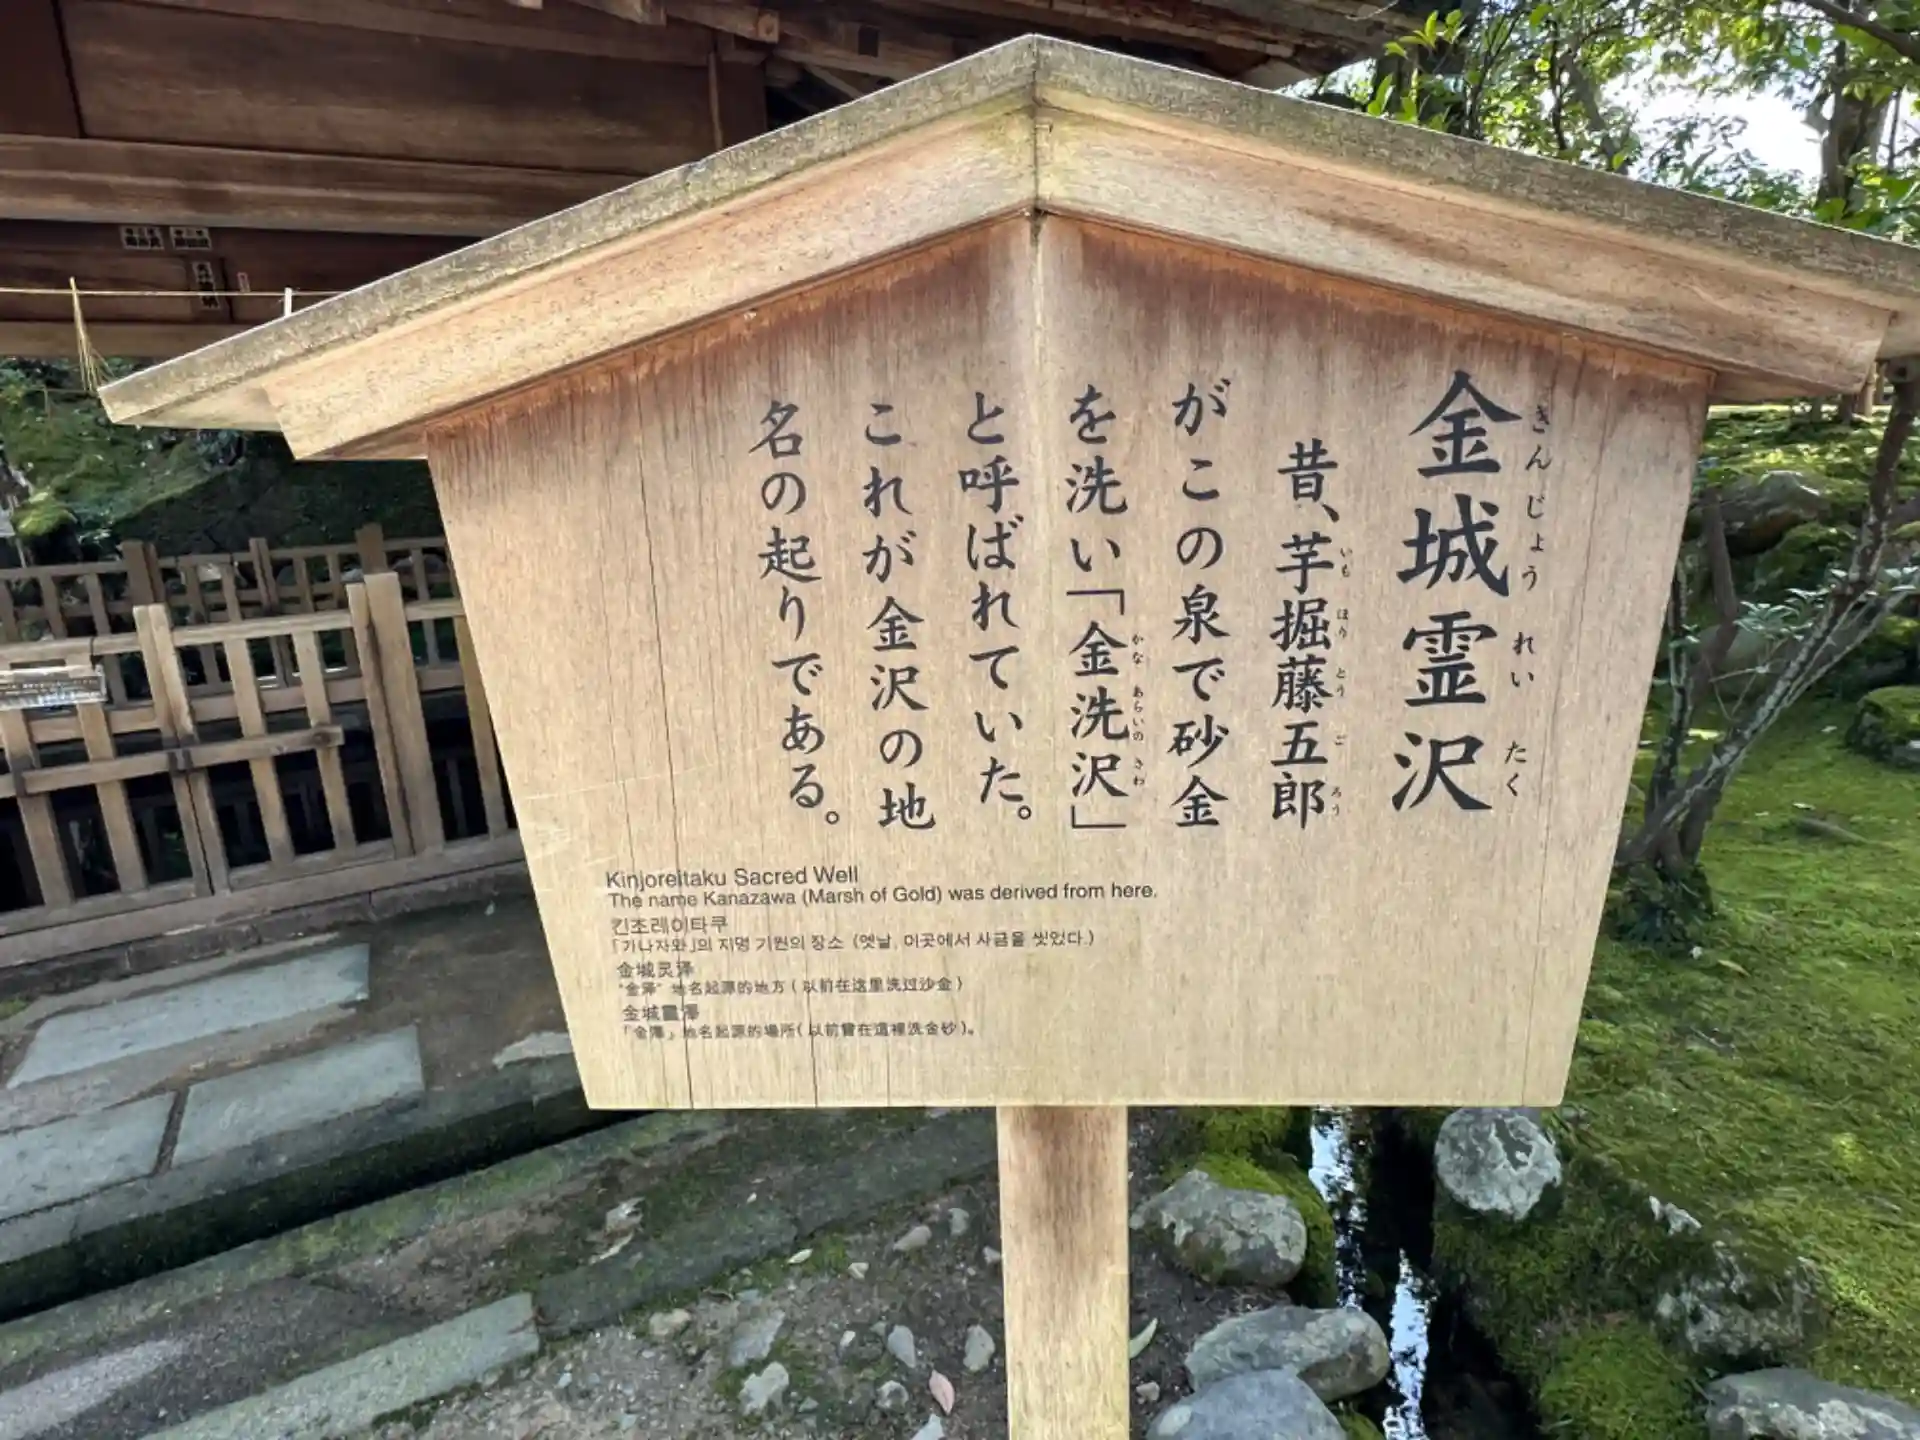 金城霊沢
きんじょうれいたく
昔、芋掘藤五郎
いもほりとうごろう
がこの泉で砂金
を洗い「金洗沢」
かなあらいのさわ
と呼ばれていた。
これが金沢の地
名の起りである。
Kinjoreitaku Sacred Well
The name Kanazawa (Marsh of Gold) was derived from here.
킨조레이타쿠
「가나자와」의 지명 기원의 장소 (옛날, 이곳에서 사금을 씻었다.)
金城灵泽
“金泽” 地名起源的地方 ( 以前在这里洗过沙金 )
金城靈澤
「金澤」地名起源的場所( 以前曾在這裡洗金砂 )。